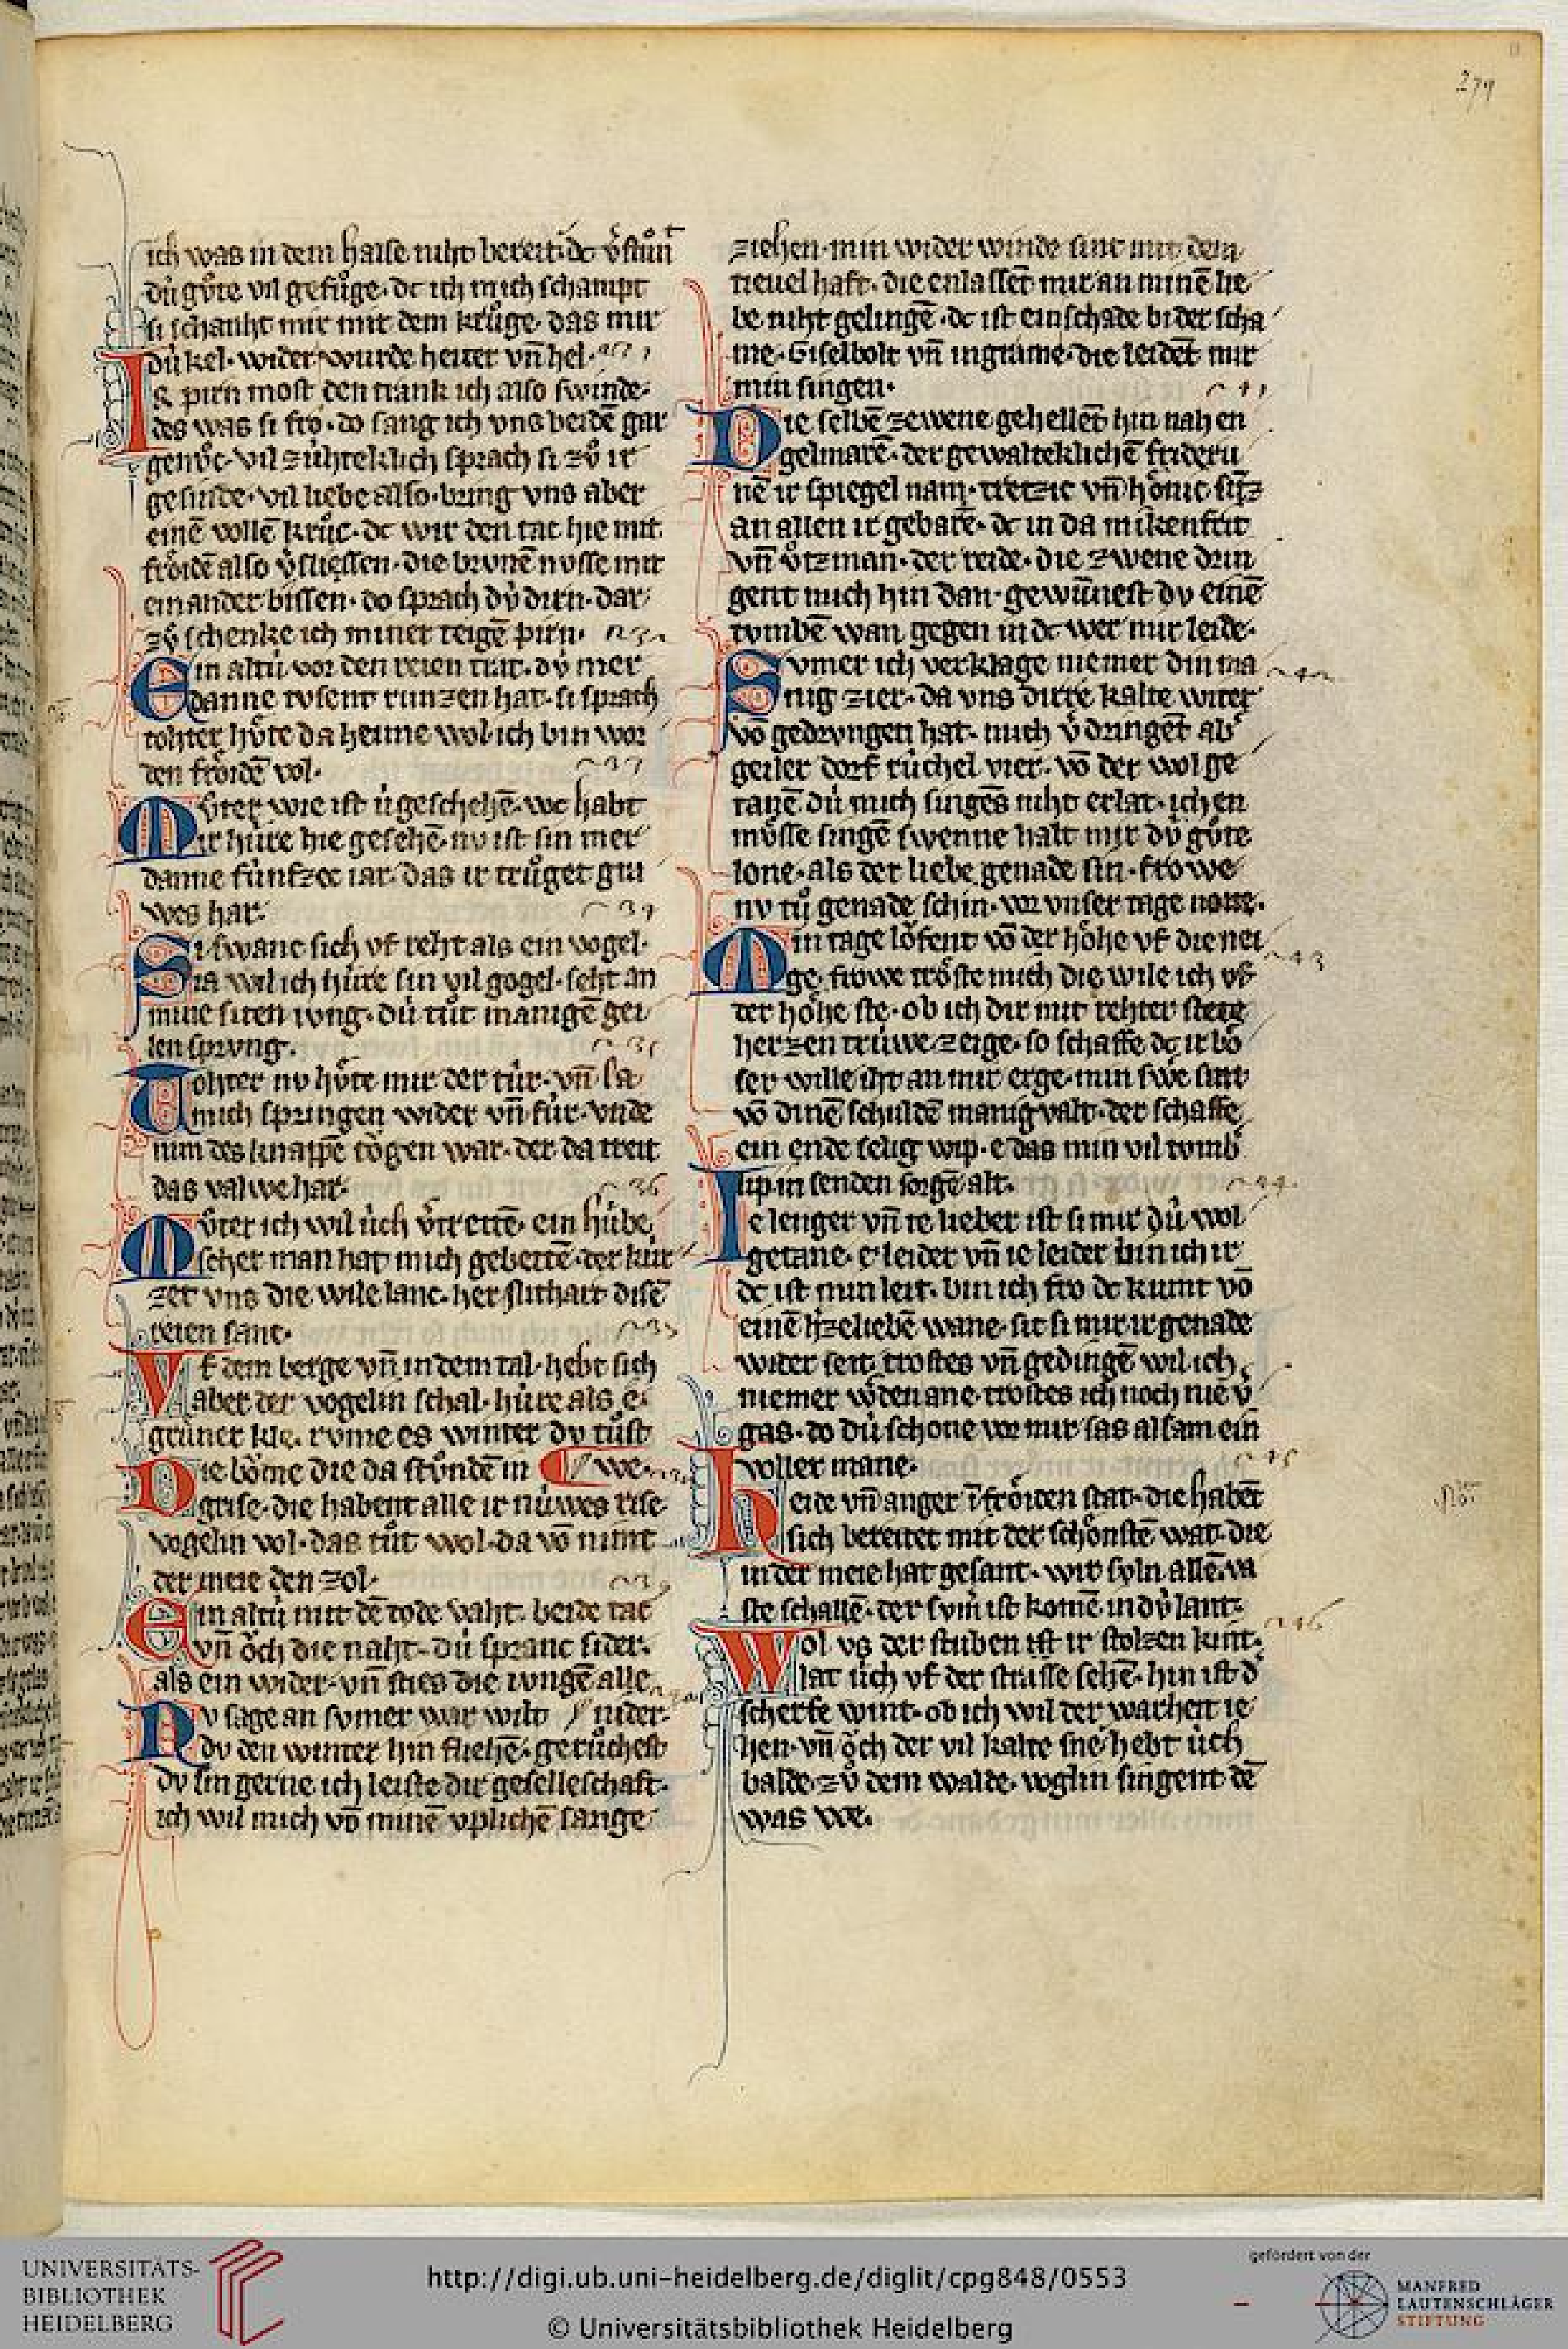 279
ich was in dem halse niht bereit· dc v̾stuͦnt
dú guͦte vil gefuͤge· dc ich mich schampt
si schanht mir mit dem kruͦge· das mir
dúkel· wider wurde heiter vn̄ hel·
Is pirn most den trank ich also swinde·
des was si fro· do sang ich vns beidē gar
genuͦc· vil zúhteklich sprach si zuͦ ir
gesinde· vil liebe also· bring vns aber
einē vollē kruͦc· dc wir den tac hie mit
froͤidē also v̾sliessen· die brvnē nvsse mit
ein ander bissen· do sprach dú dirn· dar
zuͦ schenke ich miner teigē pirn·
Ein altú vor den reien trat· dú mer
danne tvsent runzen hat· si sprach
tohter huͤte da heime wol· ich bin wor
den froͤidē vol·
Muͦter wie ist ú geschehē· wc habt
ir húre hie gesehē· nv ist sin mer
danne fúnfzec iar· das ir truͦget gra
wes har·
Si swanc sich vf reht als ein vogel·
Sia wil ich húte sin vil gogel· seht an
mine siten ivng· dú tuͦt manigē gei
len sprvng·
Tohter nv huͤte mir der túr· vn̄ la
mich springen wider vn̄ fúr· vnde
nim des knappē toͮgen war· der da treit
das valwe har·
Muͦter ich wil úch v̾trettē· ein húbe
scher man hat mich gebettē· der kúr
zet vns die wile lanc· her slithart disē
reien sanc·
Vf dem berge vn̄ in dem tal· hebt sich
aber der vogelin schal· húre als e·
gruͤner kle· rvme es winter dv tuͦst
Die boͮme die da stuͦndē in we·
grise· die habent alle ir núwes rise·
vogelin vol· das tuͦt wol· da vō nimt
der meie den zol·
Ein altú mit dē tode vaht· beide tac
vn̄ oͮch die naht· dú spranc sider·
als ein wider· vn̄ sties die ivngē alle
Nv sage an svmer war wilt nider·
dv den winter hin fliehē· geruͦchest
dv sin gerne ich leiste dir geselleschaft·
ich wil mich vō minē vplichē sange
ziehen· min wider winde sint mit dem
tieuel haft· die enlassēt mir an minē lie
be niht gelingē· dc ist ein schade bi der scha
me· Giselbolt vn̄ ingrame· die leidēt mir
min singen·
Die selbē zewene gehellēt hin nah en
gelmarē· der gewalteklichē frideru
nē ir spiegel nam· tretzic vn̄ hoͤnic sīz
an allen ir gebarē· dc in da mikenfrit
vn̄ vͦtzman· der reide· die zwene drin
gent mich hin dan· gewūnest dv einē
tvmbē wan gegen in dc wer mir leide·
Svmer ich verklage niemer din ma
nig zier· da vns dirre kalte winter
vō gedrvngen hat· mich v̾dringēt ab̾
geiler dorf rúchel vier· vō der wolge
tanē dú mich singēs niht erlat· ich en
muͤsse singē swenne halt mir dú guͦte
lone· als der liebe genade sin· frowe
nv tuͦ genade schin· vor vnser tage none·
Min tage loͮfent vō der hoͤhe vf die nei
ge· frowe troͤste mich die wile ich vf
der hoͤhe ste· ob ich dir mit rehter stete
herzen trúwe zeige· so schaffe dc ir boͤ
ser wille iht an mir erge· min swe̾ sint
vō dinē schuldē manigvalt· der schaffe
ein ende selig wip· e das min vil tvmb̾
lip in senden sorgē alt·
Ie lenger vn̄ ie lieber ist si mir dú wol
getane· e leider vn̄ ie leider bin ich ir
dc ist min leit· bin ich fro dc kumt vō
einē h̾zeliebē wane· sit si mir ir genade
wider seit· trostes vn̄ gedingē wil ich
niemer w̾den ane· trostes ich noch nie v̾
gas· do dú schone vor mir sas alsam ein
voller mane·
Heide vn̄ anger ī froͤiden stat· die habēt
sich bereitet mit der schoͤnstē wat· die
in der meie hat gesant· wir svln allē va
ste schallē· der svm̾ ist komē in dú lant·
Wol vs der stuben ist ir stolzen kint·
lat úch vf der strasse sehē· hin ist d̾
scherfe wint· ob ich wil der warheit ie
hen· vn̄ oͮch der vil kalte sne· hebt úch
balde· zuͦ dem walde· voglin singent dē
was we·
UNIVERSITÄTS-
BIBLIOTHEK
HEIDELBERG
http://digi.ub.uni-heidelberg.de/diglit/cpg848/0553
© Universitätsbibliothek Heidelberg
gefördert von der
MANFRED
LAUTENSCHLÄGER
STIFTUNG